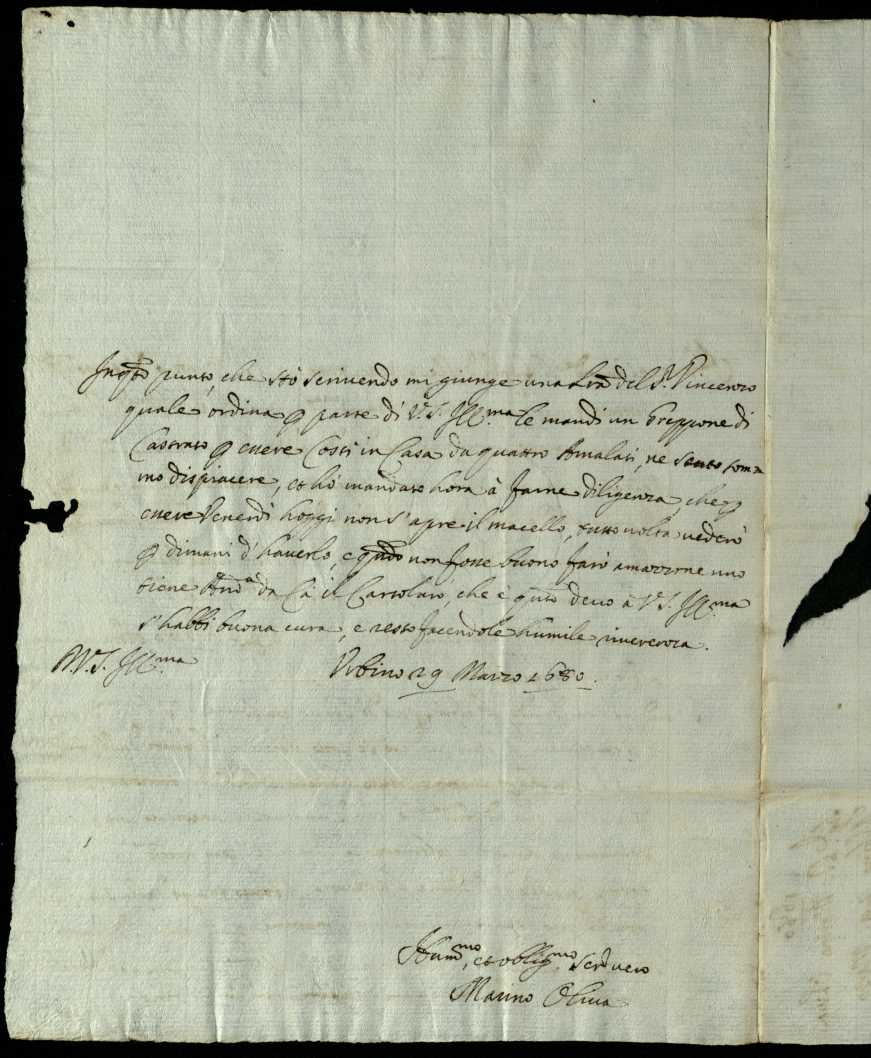 In q.to punto, che stò scrivendo mi giunge una l.ra del S.r Vincenzo
quale ordina p parte di V.S. Ill.ma le mandi un Greppone di
Castrato p essere costì in Casa da quattro Amalati, ne sento som=
mo dispiacere, et hò mandato hora à farne diligenza, che p
essere Venerdì hoggi non s'apre il macello, tutta volta vederò
p dimani d'haverlo, e q.ndo non fosse buono farò amazzarne uno
tiene da Cà il Cartolaro, che è q.to devo à V.S. Ill.ma
s'habbi buona cura, e resto facendole humile riverenza.
D.V.S. Ill.ma Urbino 29 Marzo 1680.
Hum.mo, et oblig.mo Ser.r vero
Marino Oliva